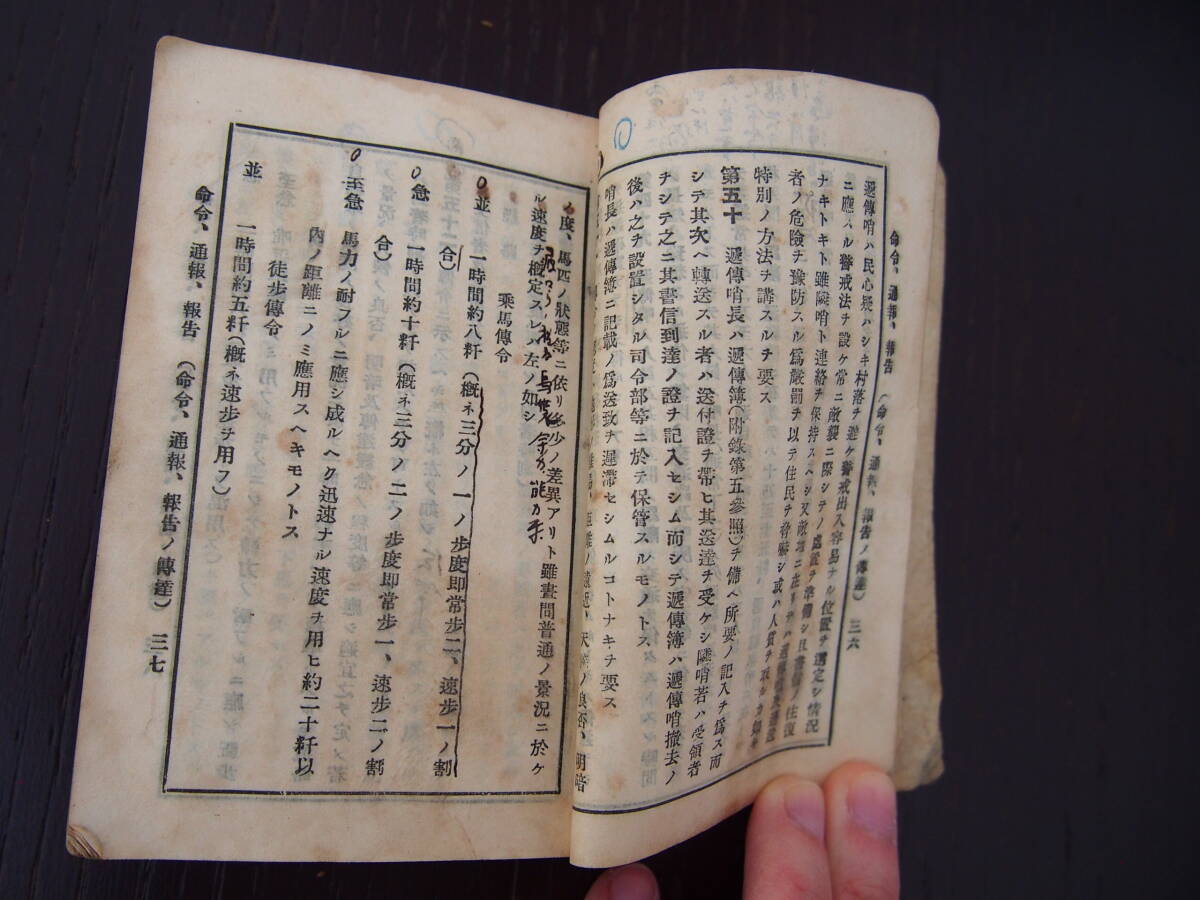 命令、通報、報告 (命令、通報、報告ノ傳達) 三六
遞傳哨ハ民心疑ハシキ村落チ避ケ警戒出入容易ナル位置チ選定シ情況
ニ應スル警戒法チ設ケ常ニ敵襲ニ際シテノ處置チ準備シ且書信ノ往復
ナキトキト雖隣哨ト連絡チ保持スヘシ又敵地ニ在リテハ
者ノ危險チ豫防スル爲嚴罰チ以テ住民チ脅嚇シ或ハ人質チ取ル
特別ノ方法チ講スルチ要ス
第五十 遞傳哨長ハ遞傳簿(附錄第五參照)チ備ヘ所要ノ記入チ爲ス而
シテ其次ヘ轉送スル者ハ送付證チ帶ヒ其送達チ受ケシ隣哨若ハ受領者
チシテ之ニ其書信到達ノ證チ記入セシム而シテ遞傳簿ハ遞傳哨撤去ノ
後ハ之チ設置シタル司令部等ニ於テ保管スルモノトス
哨長ハ遞傳簿ニ記載ノ爲送致チ遲滯セシムルコトナキチ要ス
天候ノ良否、明暗
ノ度、馬匹ノ狀態等ニ依リ多少ノ差異アリト雖晝間普通ノ景況ニ於ケ
ル速度チ槪定スレハ左ノ如シ
乘馬傳令
並 一時間約八粁(槪ネ三分ノ一ノ步度即常步二、速步一ノ割
合)
急 一時間約十粁(槪ネ三分ノ二ノ步度即常步一、速步二ノ割
合)
至急 馬力ノ耐フルニ應シ成ルヘク迅速ナル速度チ用ヒ約二十粁以
內ノ距離ニノミ應用スヘキモノトス
徒步傳令
並 一時間約五粁(槪ネ速步チ用フ)
命令、通報、報告 (命令、通報、報告ノ傳達) 三七